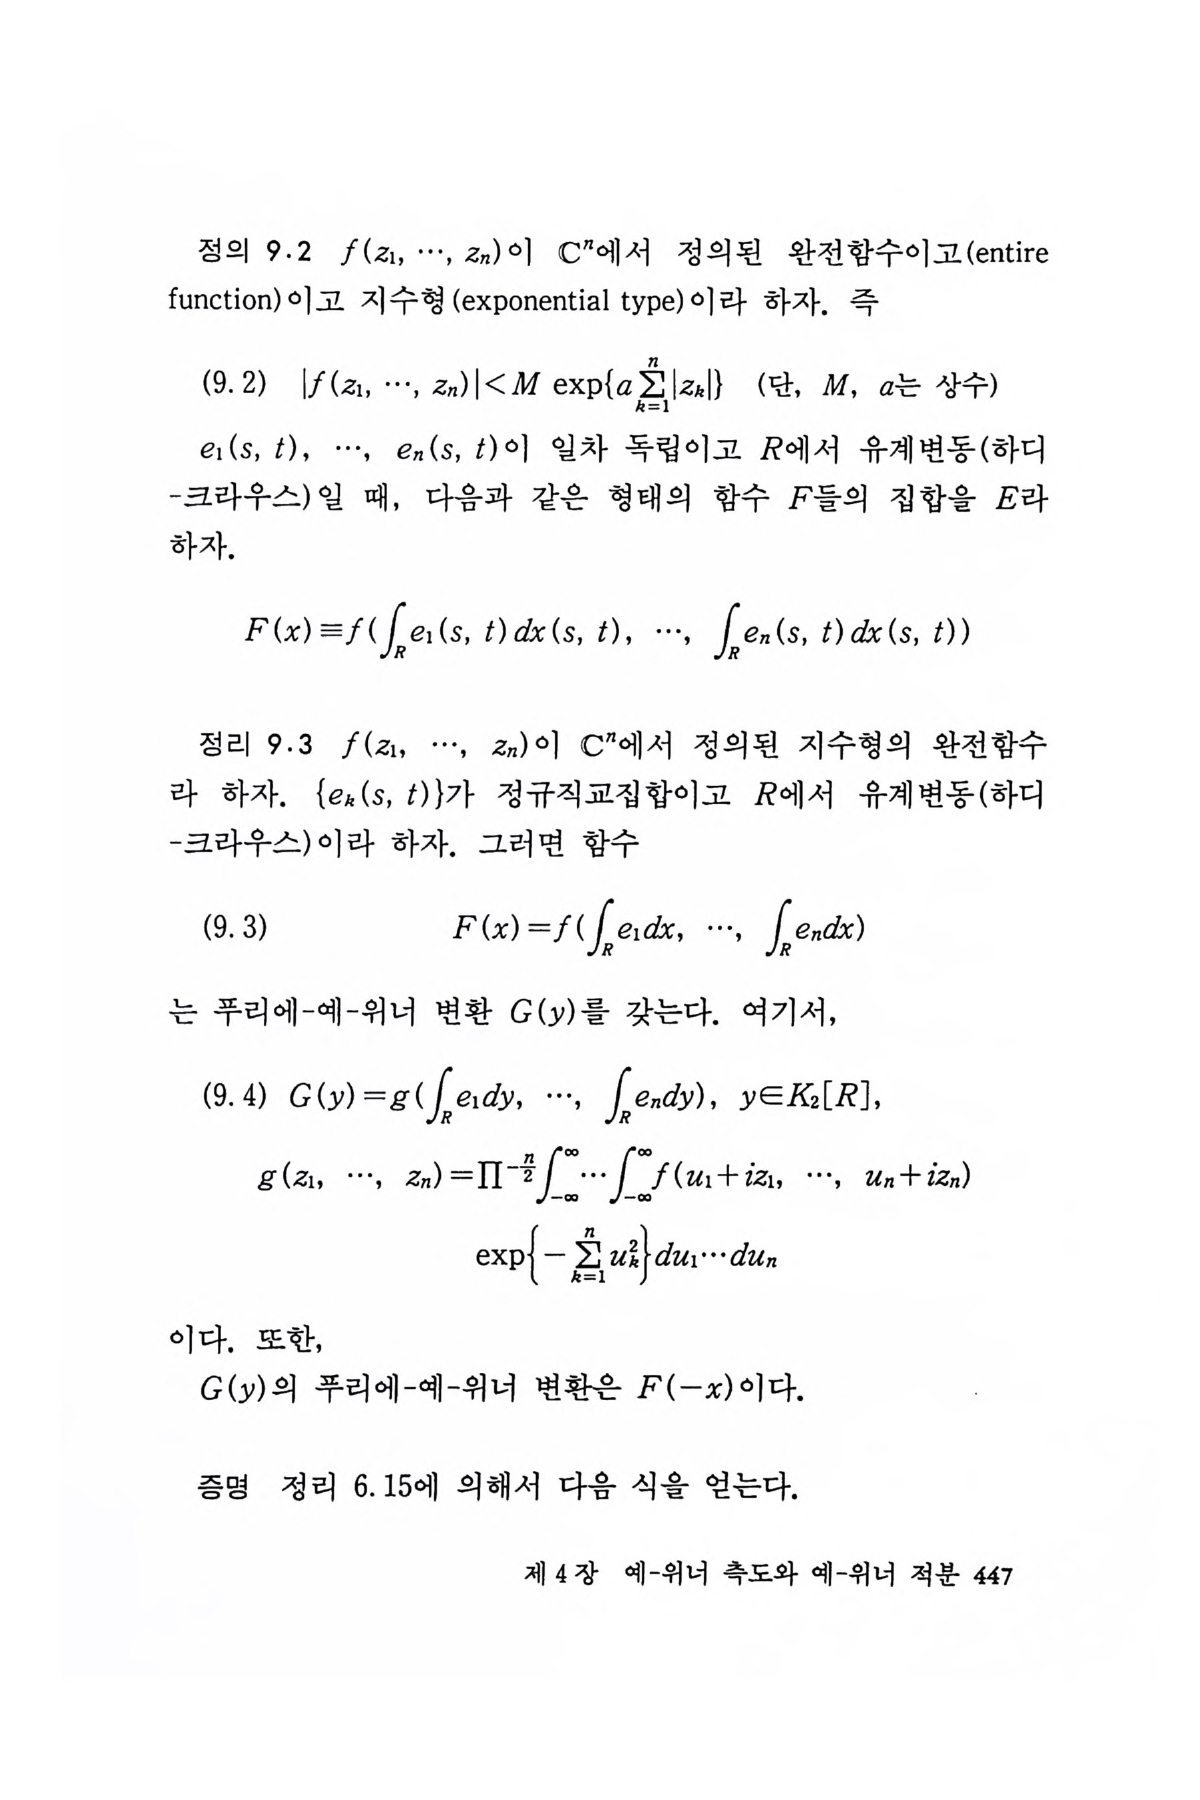 정의 9.2 f(z₁, ⋯, zₙ)이 ℂⁿ에서 정의된 완전함수이고(entire
function)이고 지수형(exponential type)이라 하자. 즉
(9.2) |f(z₁, ⋯, zₙ)|<M exp{a∑ₖ₌₁ⁿ|zₖ|} (단, M, a는 상수)
e₁(s, t), ⋯, eₙ(s, t)이 일차 독립이고 R에서 유계변동(하디
-크라우스)일 때, 다음과 같은 형태의 함수 F들의 집합을 E라
하자.
F(x)≡f(∫_R e₁(s, t)dx(s, t), ⋯, ∫_R eₙ(s, t)dx(s, t))
정리 9.3 f(z₁, ⋯, zₙ)이 ℂⁿ에서 정의된 지수형의 완전함수
라 하자. {eₖ(s, t)}가 정규직교집합이고 R에서 유계변동(하디
-크라우스)이라 하자. 그러면 함수
(9.3) F(x)=f(∫_R e₁dx, ⋯, ∫_R eₙdx)
는 푸리에-예-위너 변환 G(y)를 갖는다. 여기서,
(9.4) G(y)=g(∫_R e₁dy, ⋯, ∫_R eₙdy), y∈K₂[R],
g(z₁, ⋯, zₙ)=∏^{-n/2}∫_{-∞}^{∞}⋯∫_{-∞}^{∞}f(u₁+iz₁, ⋯, uₙ+izₙ)
exp{-∑ₖ₌₁ⁿuₖ²}du₁⋯duₙ
이다. 또한,
G(y)의 푸리에-예-위너 변환은 F(-x)이다.
증명 정리 6.15에 의해서 다음 식을 얻는다.
제 4 장 예-위너 측도와 예-위너 적분 447